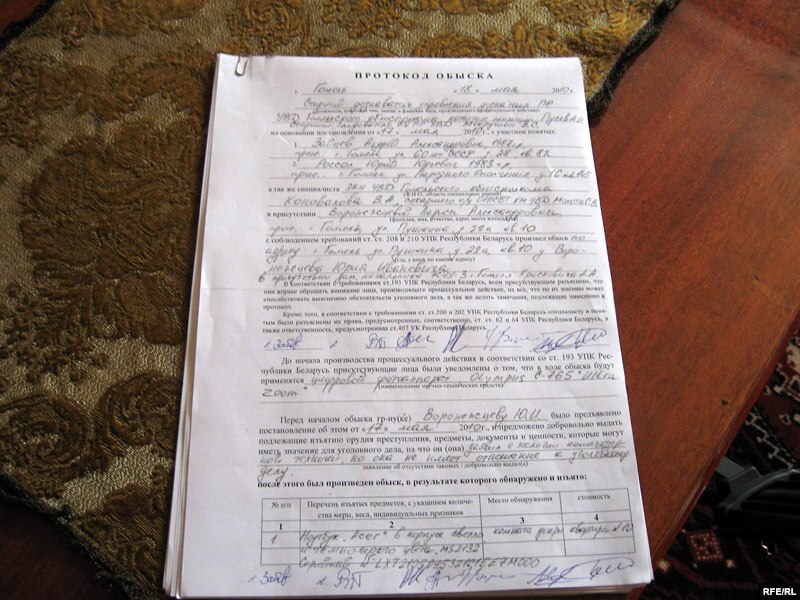 ПРОТОКОЛ ОБЫСКА
г. Гомель «18» мая 2010 г.
Старший дознаватель управления дознания ПР
УВД Гомельского облисполкома капитан милиции Пусев А.И.
на основании постановления от «17» мая 2010 г. с участием понятых:
1. Зайцев Андрей Александрович, 1987 г.р.
прож. г. Гомель ул. 60 лет СССР д. 28 кв. 82
2. Россол Юрий Юрьевич 1983 г.р.
прож. г. Гомель ул. Народного Ополчения д. 16 кв. 165
а так же специалиста ЭКЦ УВД Гомельского облисполкома
Коновалова В.А.
в присутствии Воронежцевой Ларисы Александровны
(фамилия, имя, отчество, адрес места жительства)
прож. г. Гомель ул. Пушкина д. 22а кв. 10
с соблюдением требований ст. ст. 208 и 210 УПК Республики Беларусь произвел обыск по
адресу: г. Гомель ул. Пушкина д. 22а кв. 10 у Воро-
(где, у кого, по какому адресу)
нежцева Юрия Ивановича
в присутствии зам. начальника
В соответствии с требованиями ст.193 УПК Республики Беларусь, всем присутствующим разъяснено, что
они вправе обращать внимание лица, производящего процессуальное действие, на все, что по их мнению может
способствовать выяснению обстоятельств уголовного дела, а так же делать замечания, подлежащие занесению в
протокол.
Кроме того, в соответствии с требованиями ст.200 и 202 УПК Республики Беларусь специалисту и поня-
тым были разъяснены их права, предусмотренные, соответственно, ст. ст. 62 и 64 УПК Республики Беларусь, а
также ответственность, предусмотренная ст.407 УК Республики Беларусь.
До начала производства процессуального действия в соответствии со ст. 193 УПК Рес-
публики Беларусь присутствующие лица были уведомлены о том, что в ходе обыска будут
применятся цифровой фотоаппарат Olympus C-765 "Ultra
(наименование научно-технических средств)
Zoom"
Перед началом обыска гр-ну(ке) Воронежцеву Ю.И. было предъявлено
постановление об этом от «17» мая 2010 г. и предложено добровольно выдать
подлежащие изъятию орудия преступления, предметы, документы и ценности, которые могут
иметь значение для уголовного дела, на что он (она) заявил о наличии компьютер-
ной техники, но она не имеет отношение к уголовному
делу.
заявление об отсутствии таковых / добровольно выдал(а)
после этого был произведен обыск, в результате которого обнаружено и изъято:
№ п/п Перечень изъятых предметов, с указанием количества меры, веса, индивидуальных признаков Место обнаружения стоимость
1 2 3 4
1 Ноутбук "Acer" в корпусе светло комната дочери квартиры №10
и темно-серого цвета, MS2132
Серийный №
RFE/RL